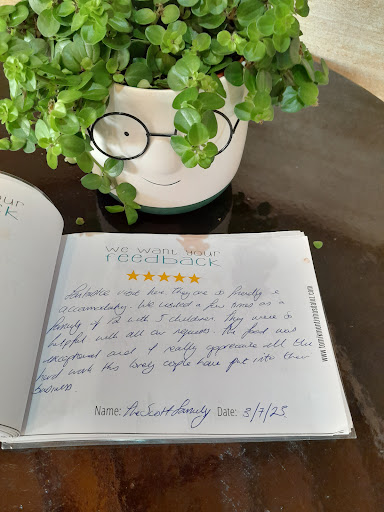 our
back
we want your
feedback
Fantastic visit here. They are so friendly &
accomodating. We visited a few times as a
family of 12 with 5 children. They were so
helpful with all our requests. The food was
exceptional and I really appreciate all the
hard work this lovely cople have put into their
business.
Name: The Scott Family Date: 3/7/23